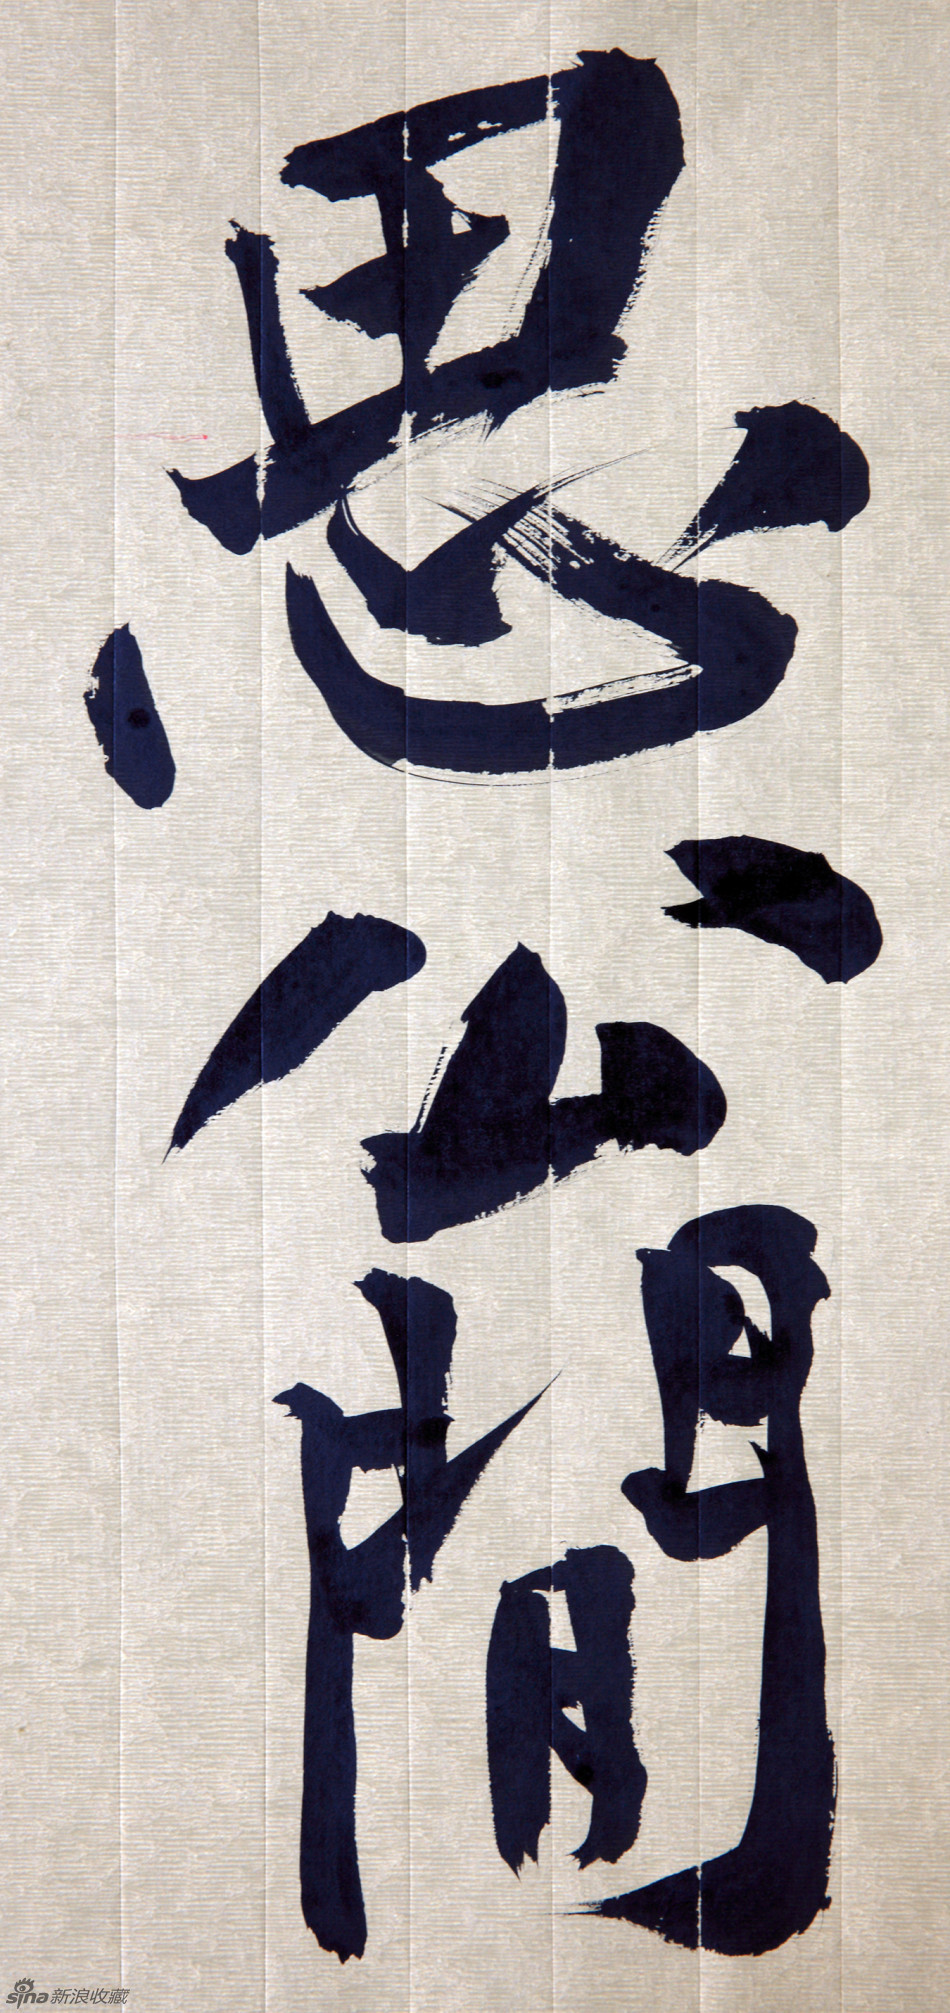 思公閒
sina新浪收藏